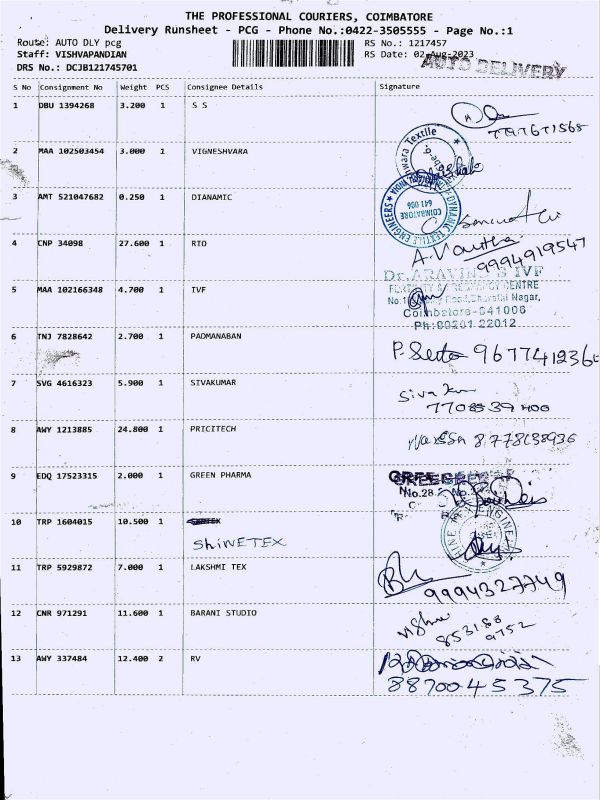 THE PROFESSIONAL COURIERS, COIMBATORE
Delivery Runsheet - PCG - Phone No.:0422-3505555 - Page No.:1
Route: AUTO DLY pcg RS No.: 1217457
Staff: VISHVAPANDIAN RS Date: 02-Aug-2023
DRS No.: DCJB121745701 AUTO DELIVERY
S No Consignment No Weight PCS Consignee Details Signature
1 DBU 1394268 3.200 1 S S
2 MAA 102503454 3.000 1 VIGNESHVARA
Textile
3 AMT 521047682 0.250 1 DIANAMIC
DYNAMIC TEXTILE ENGINEERS
COIMBATORE
641 006
4 CNP 34098 27.600 1 RIO
9994919547
5 MAA 102166348 4.700 1 IVF
Dr.ARAVIND'S IVF
FERTILITY & PREGNANCY CENTRE
Coimbatore-641006
6 TNJ 7828642 2.700 1 PADMANABAN
7 SVG 4616323 5.900 1 SIVAKUMAR
8 AWY 1213885 24.800 1 PRICITECH
9 EDQ 17523315 2.000 1 GREEN PHARMA
No.28
10 TRP 1604015 10.500 1
ShiNETEX
11 TRP 5929872 7.000 1 LAKSHMI TEX
9994327749
12 CNR 971291 11.600 1 BARANI STUDIO
13 AWY 337484 12.400 2 RV
8870045375